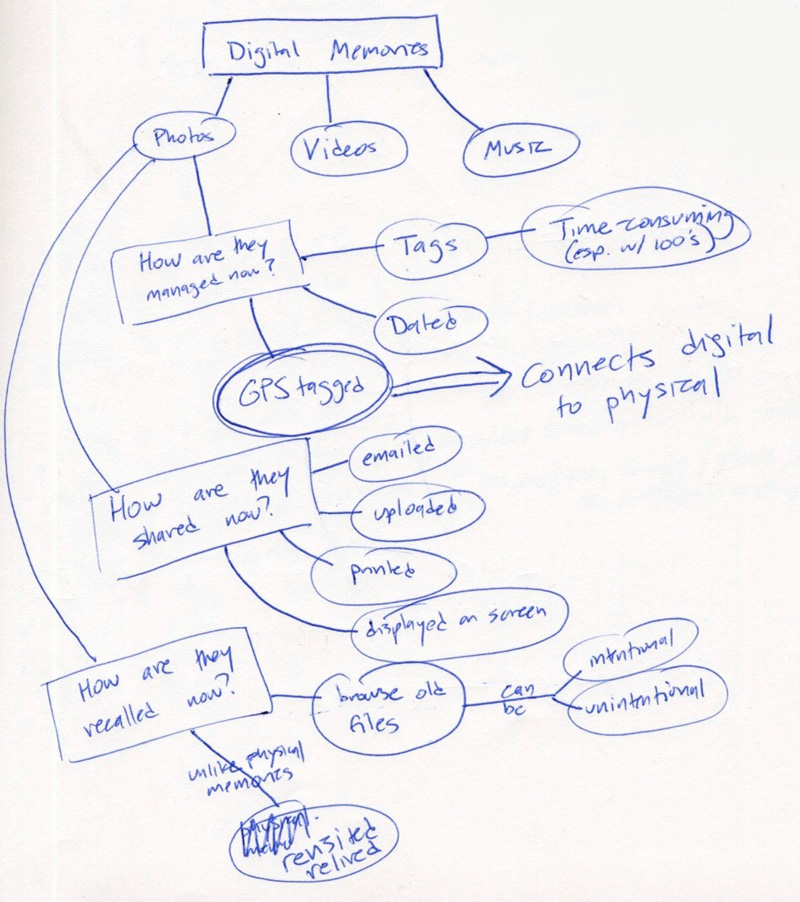 Digital Memories
Photos
Videos
Music
How are they
managed now?
Tags
Time-consuming
(esp. w/ 100's)
Dated
GPS tagged
Connects digital
to physical
How are they
shared now?
emailed
uploaded
printed
displayed on screen
How are they
recalled now?
browse old
files
can
be
intentional
unintentional
unlike physical
memories
revisited
relived